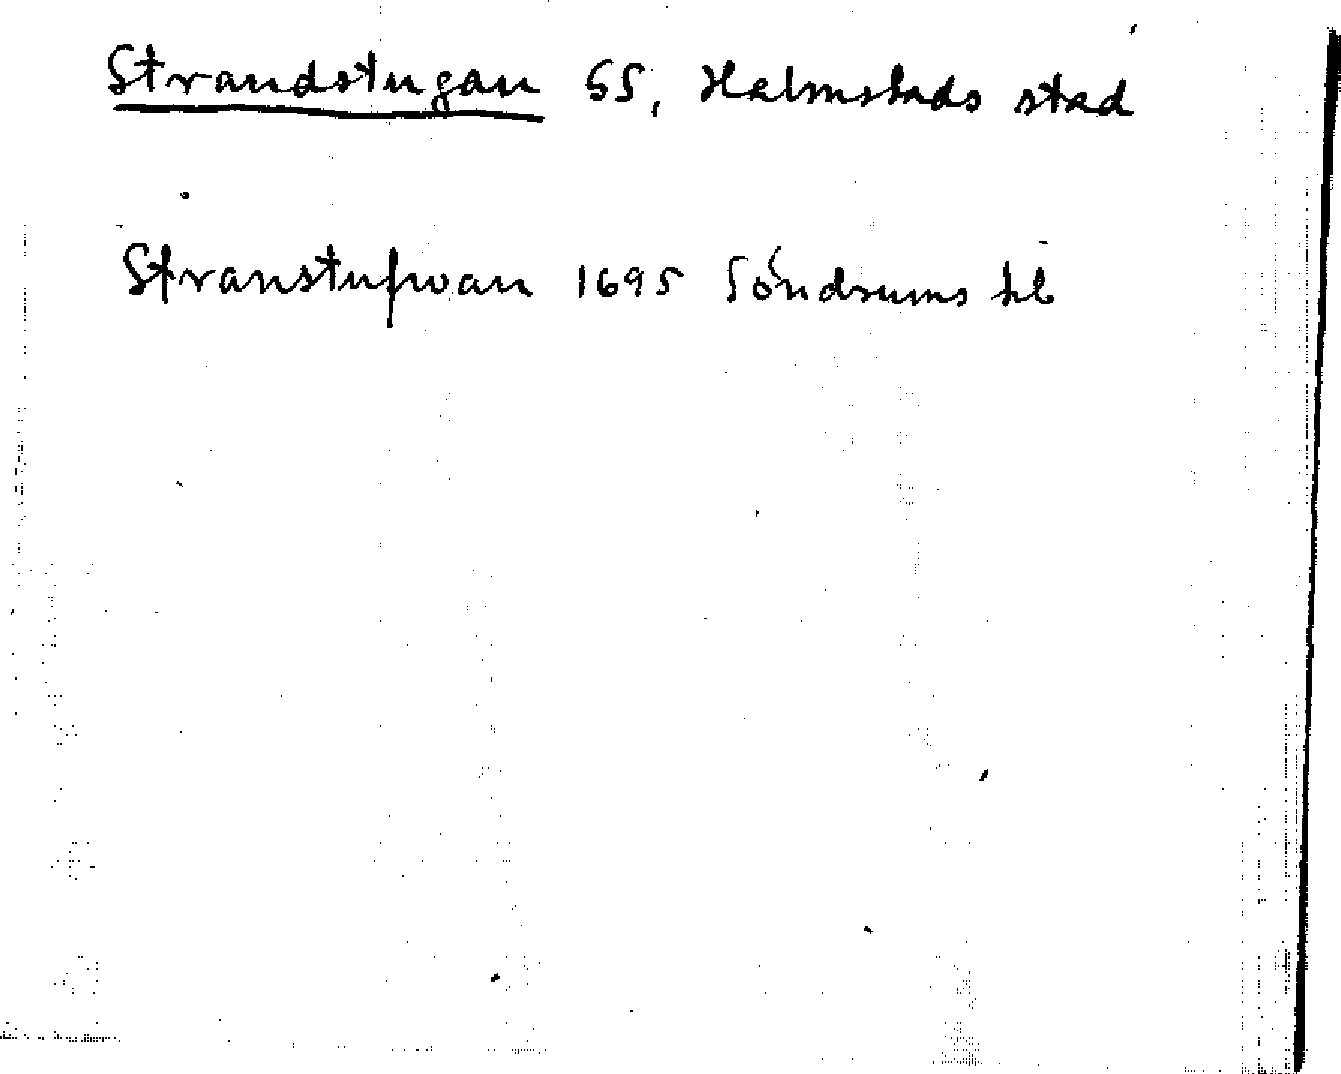 Strandstugan GS, Halmstads stad
Stranstufwan 1695 Söndrums kb